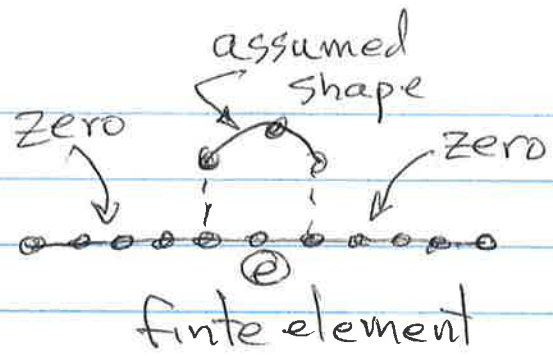 assumed
shape
zero
zero
e
finte element